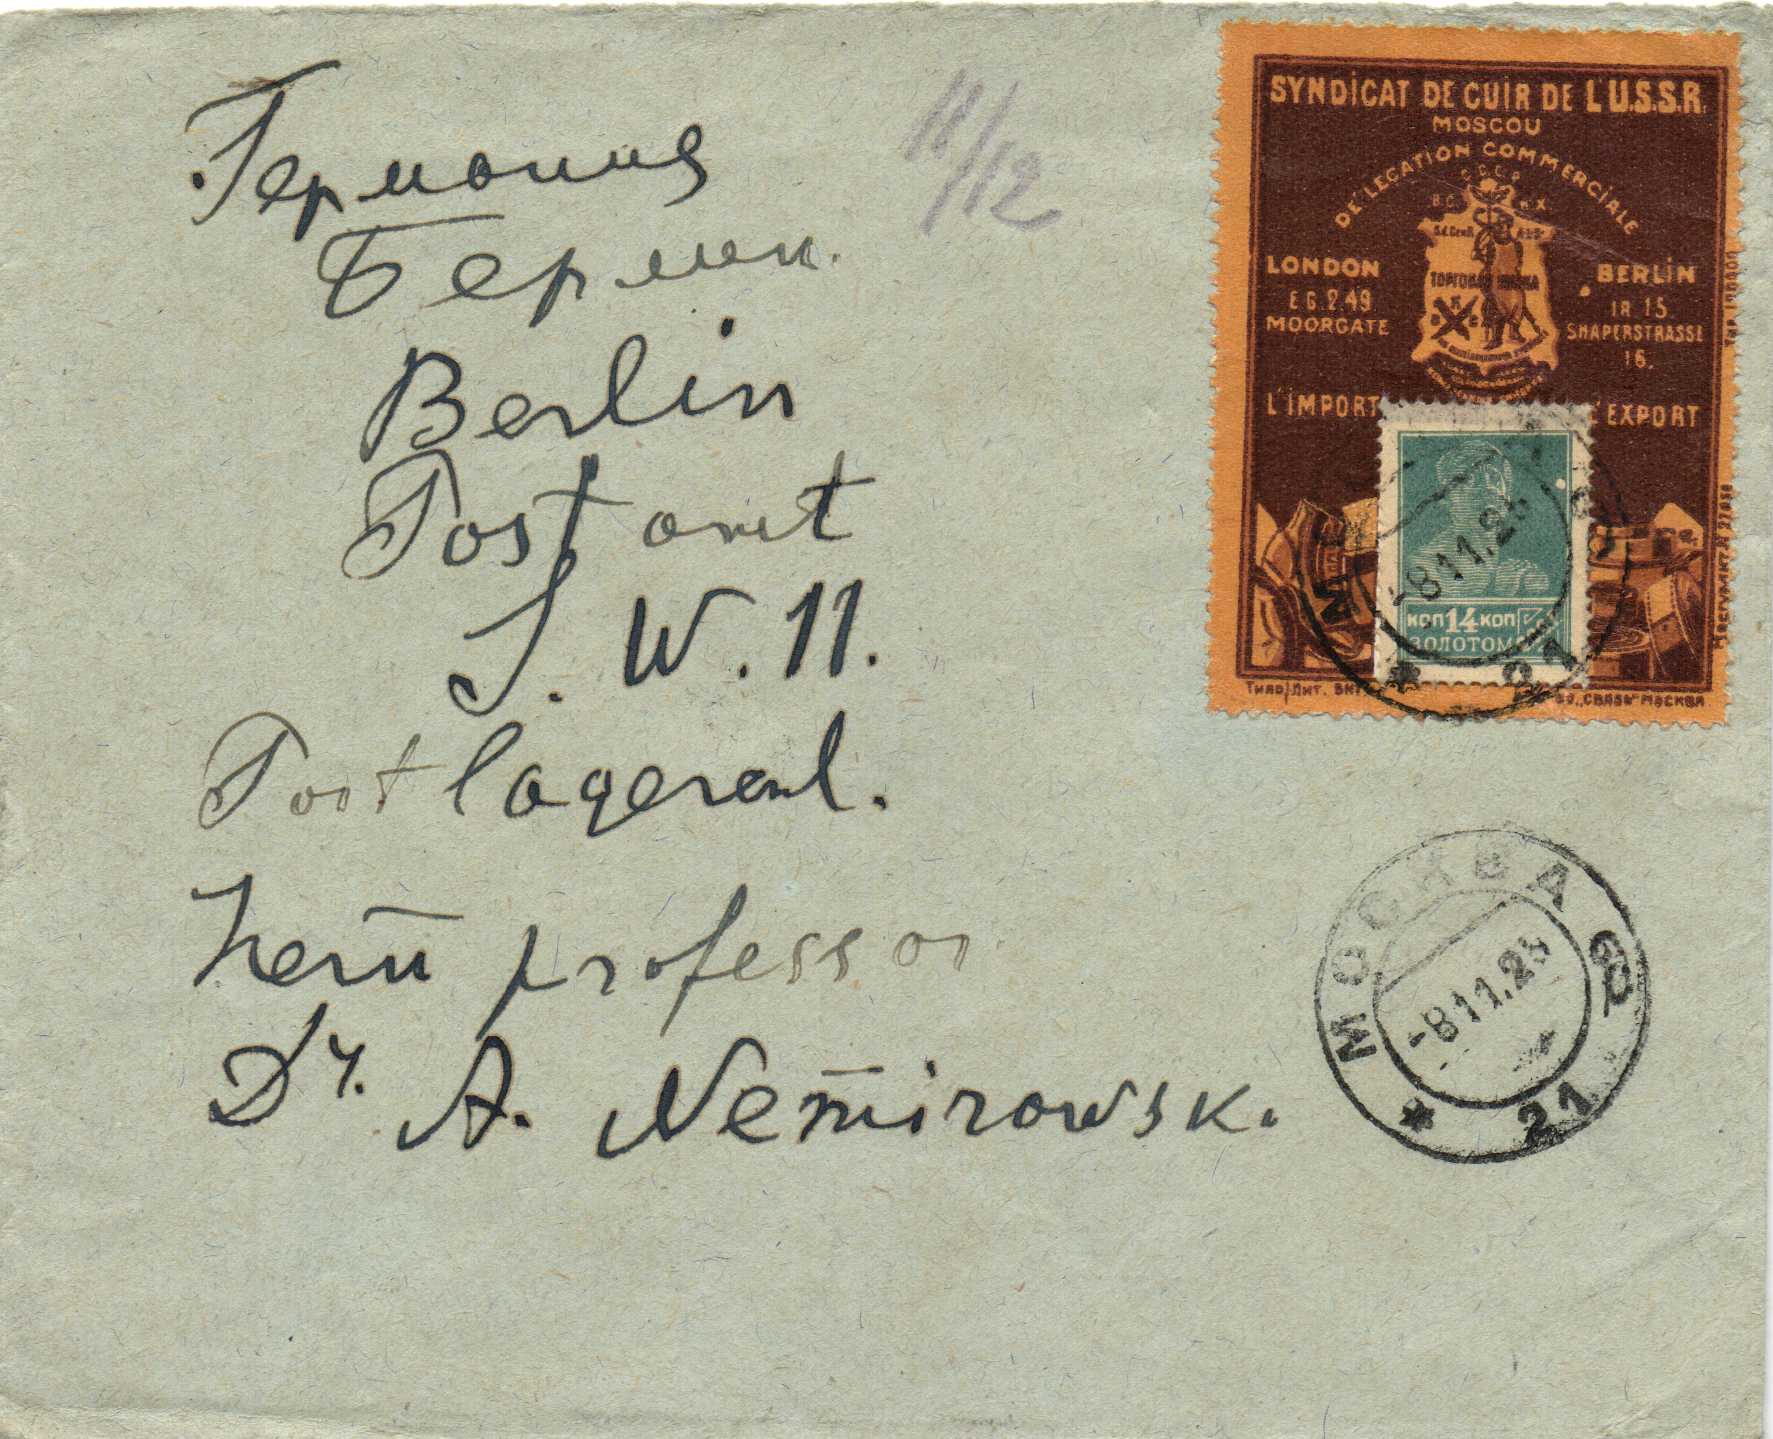 Германия
Берлин.
Berlin
Postamt
S. W. 11.
Postlagernd.
Herrn professor
Dr. A. Nemirowski
18/12
SYNDICAT DE CUIR DE L'U.S.S.R.
MOSCOU
DÉLÉGATION COMMERCIALE
С.С.С.Р.
В.С. Н.Х.
ТОРГОВАЯ МАРКА
LONDON
E.G.2.49
MOORGATE
BERLIN
IR 15
SHAPERSTRASSE
16.
L'IMPORT
L'EXPORT
КОП 14 КОП
ЗОЛОТОМ
"СВЯЗЬ" МОСКВА
МОСКВА
-8.11.25
21
МОСКВА
-8.11.25
21